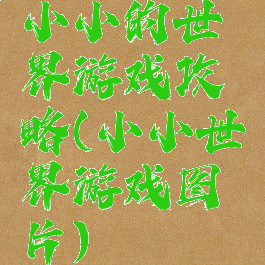 小小的世
界游戏攻
略(小小世
界游戏图
片)